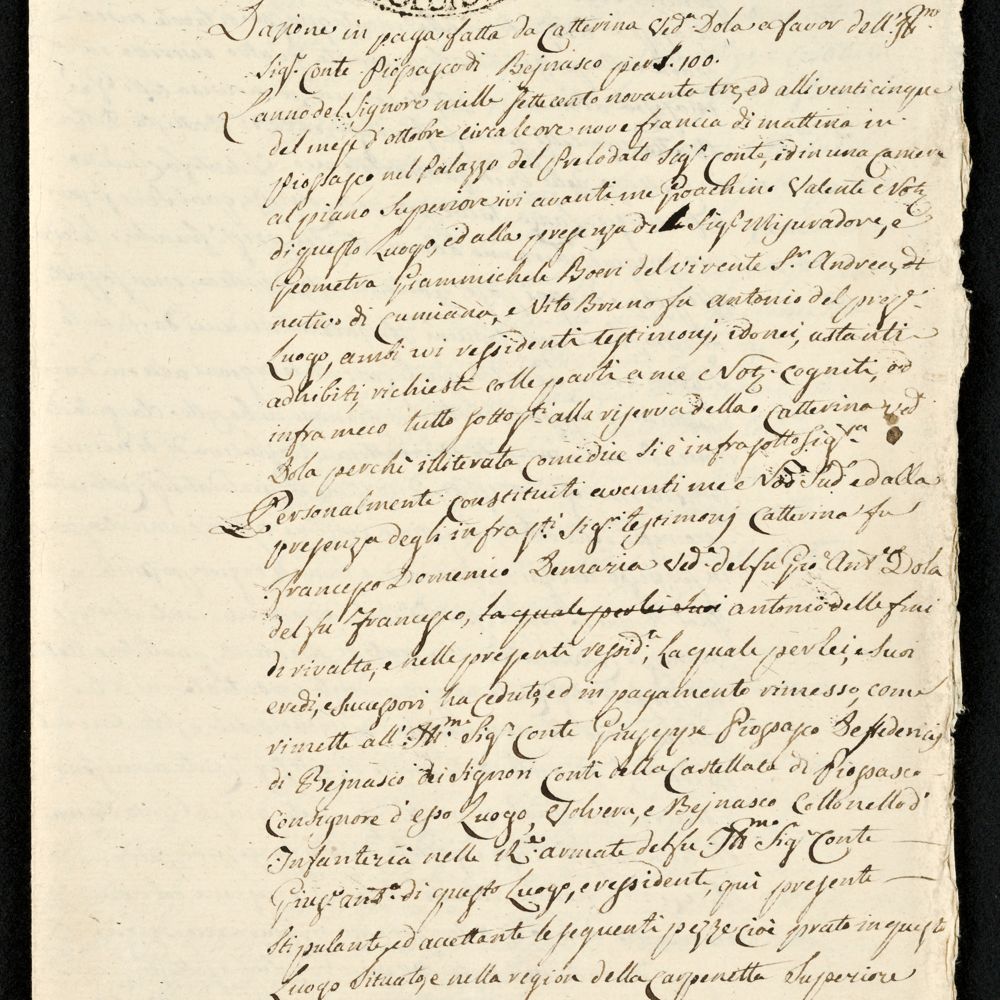 Dazione in paga fatta da Catterina Ved.ª Dola a favor dell'Ill.mo
Sig.r Conte Piossasco di Bejnasco per L. 100.
L'anno del Signore mille settecento novanta tre, ed alli venti cinque
del mese d'ottobre circa le ore nove francia di mattina in
Piossasco, nel Palazzo del Prelodato Sig.r Conte, ed in una Camera
al piano superiore ivi avanti me Gioachino Valente Not.
di questo Luogo, ed alla presenza del Sig.r Misuradore, e
Geometra Giammichele Boeri del vivente S.r Andrea,
nativo di Cumiana, e Vito Bruno fu Antonio del pres.te
Luogo, ambi ivi ressidenti testimonj idonei, astanti
adhibiti, richiesti colle parti a me Not. cogniti, ed
infra meco tutto sottos.ti alla riserva della Catterina Ved.
Dola perchè illiterata come dice si è infra sottosig.ta
Personalmente constituiti avanti me Not. Sud.o ed alla
presenza degli infras.ti Sig.ri testimonj Catterina fu
Francesco Domenico Demaria Ved.ª del fu Gio Ant.o Dola
del fu Francesco, la quale per lei e suoi antonio delle fini
di rivalta, e nelle presenti ressid.te, La quale per lei, e suoi
eredi, e successori, ha ceduto, ed in pagamento rimesso, come
rimette all'Ill.mo Sig.r Conte Giuseppe Piossasco Deffederici
di Bejnasco dei Signori Conti della Castellata di Piossasco
Consignore d'esso Luogo, Volvera, e Bejnasco Collonello d'
Infanteria nelle R.e armate del fu Ill.mo Sig.r Conte
Gius.e ant.o di questo Luogo, e ressidente, quì presente
stipulante, ed accettante le seguenti pezze cioè prato in questo
Luogo situato, e nella region della Carpenetta Superiore